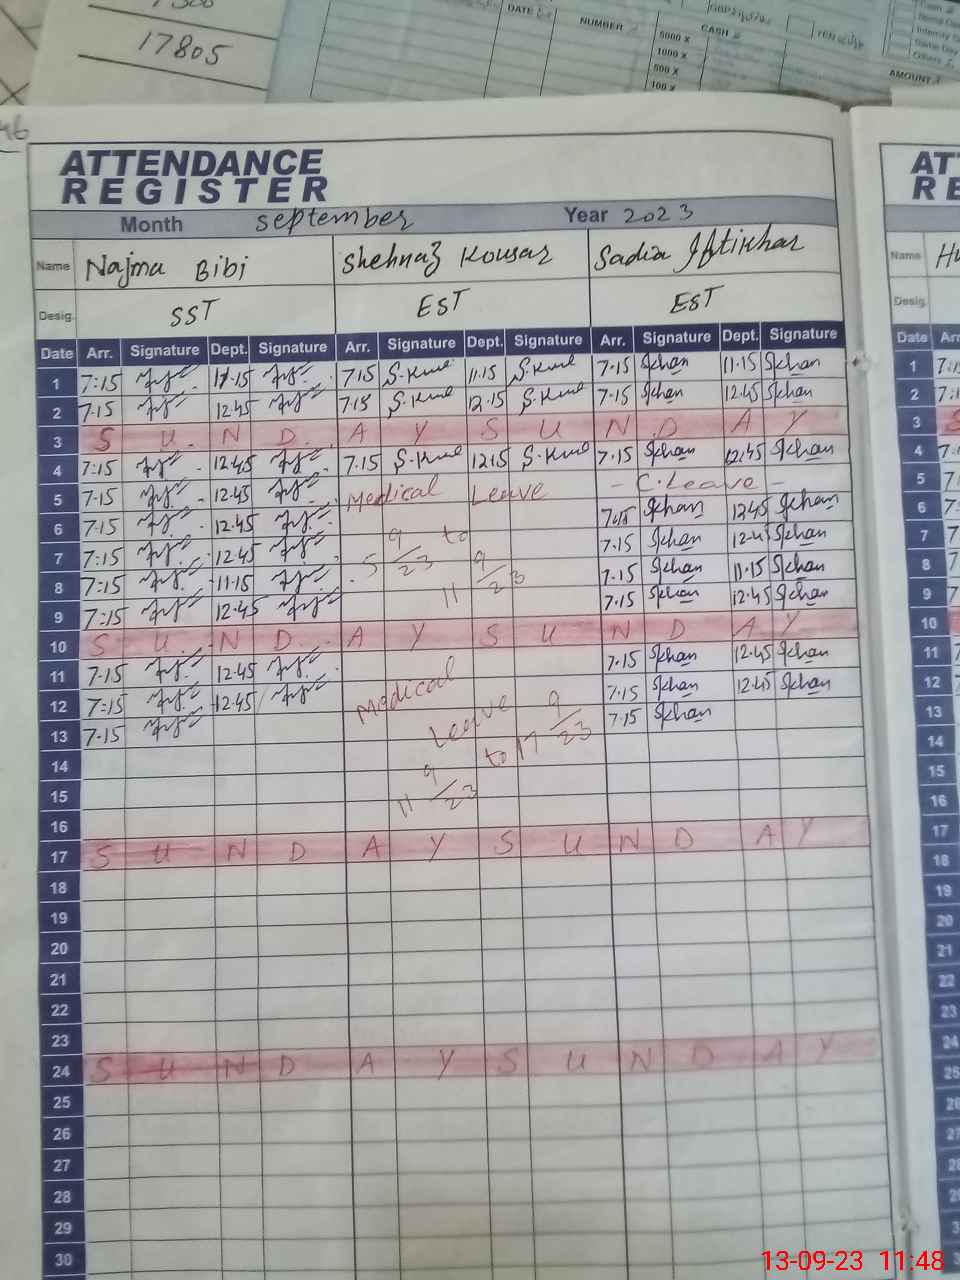 17805
DATE
NUMBER
CASH
5000 X
1000 X
500 X
100 X
AMOUNT
46
ATTENDANCE
REGISTER
Month September Year 2023
Name Najma Bibi Shehnaz Kousar Sadia Iftikhar
Desig. SST EST EST
Date Arr. Signature Dept. Signature Arr. Signature Dept. Signature Arr. Signature Dept. Signature
1 7:15 11.15 7.15 S.Kml 11.15 S.Kml 7.15 Skhan 11.15 Skhan
2 7.15 12.45 7.15 S.Kml 12.15 S.Kml 7.15 Skhan 12.45 Skhan
3 S U N D A Y S U N D A Y
4 7:15 12.45 7.15 S.Kml 12.15 S.Kml 7.15 Skhan 12.45 Skhan
5 7.15 12.45 Medical Leave - C.Leave -
6 7.15 12.45 5 9/23 to 7.15 Skhan 12.45 Skhan
7 7:15 12.45 11 9/23 7.15 Skhan 12.45 Skhan
8 7:15 11.15 7.15 Skhan 11.15 Skhan
9 7:15 12.45 7.15 Skhan 12.45 Skhan
10 S U N D A Y S U N D A Y
11 7.15 12.45 Medical 7.15 Skhan 12.45 Skhan
12 7:15 12.45 Leave 7.15 Skhan 12.45 Skhan
13 7.15 11 9/23 to 17 9/23 7.15 Skhan
14
15
16
17 S U N D A Y S U N D A Y
18
19
20
21
22
23
24 S U N D A Y S U N D A Y
25
26
27
28
29
30
AT
RE
Name Hu
Desig.
Date Arr
1
2
3
4
5
6
7
8
9
10
11
12
13
14
15
16
17
18
19
20
21
22
23
24
25
26
27
28
13-09-23 11:48